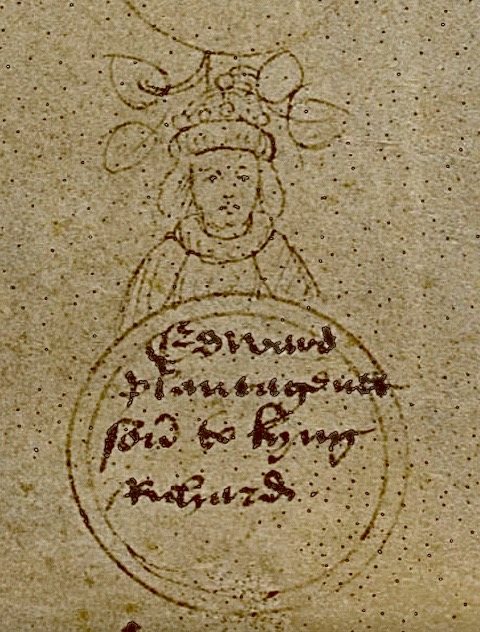 Edward
plantagenett
son to kyng
Richard